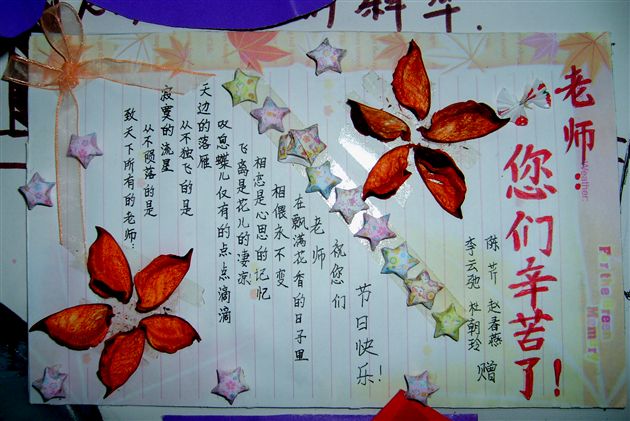 老师:
您们辛苦了!
致天下所有的老师:
从不陨落的是
寂寞的流星
从不独飞的是
天边的落雁
叹息蝶儿仅有的点点滴滴
飞离是花儿的凄凉
相恋是心思的记忆
相偎永不变
在飘满花香的日子里
老师
祝您们
节日快乐!
陈芹 赵春燕
李云弛 杜朝玲
赠